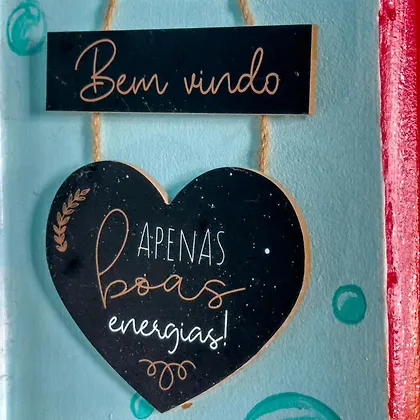 Bem vindo
APENAS
boas
energias!